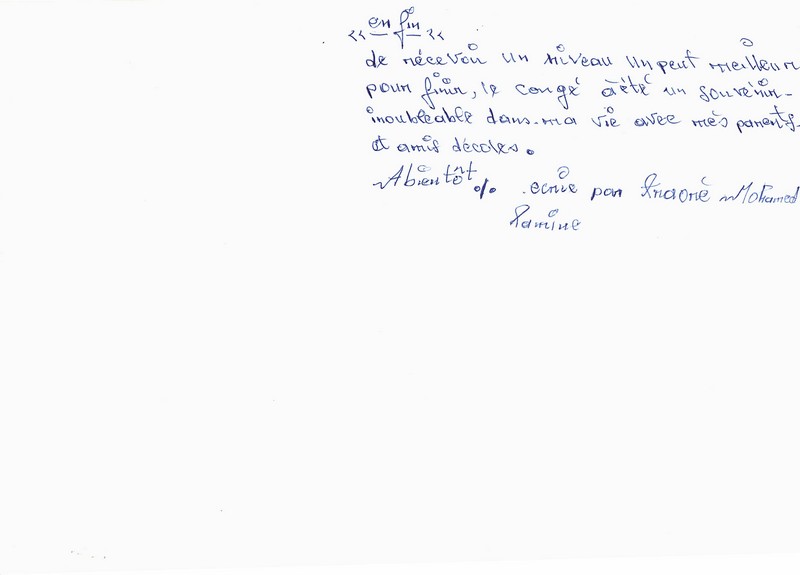 << en fin <<
de récevoir un niveau un peut meilleur
pour finir, le congé àété un souvénir-
inoubléable dans-ma vie avec mes parents-
et amis décoles.
Abientôt %. ecrie par Traoré Mohamed
Lamine